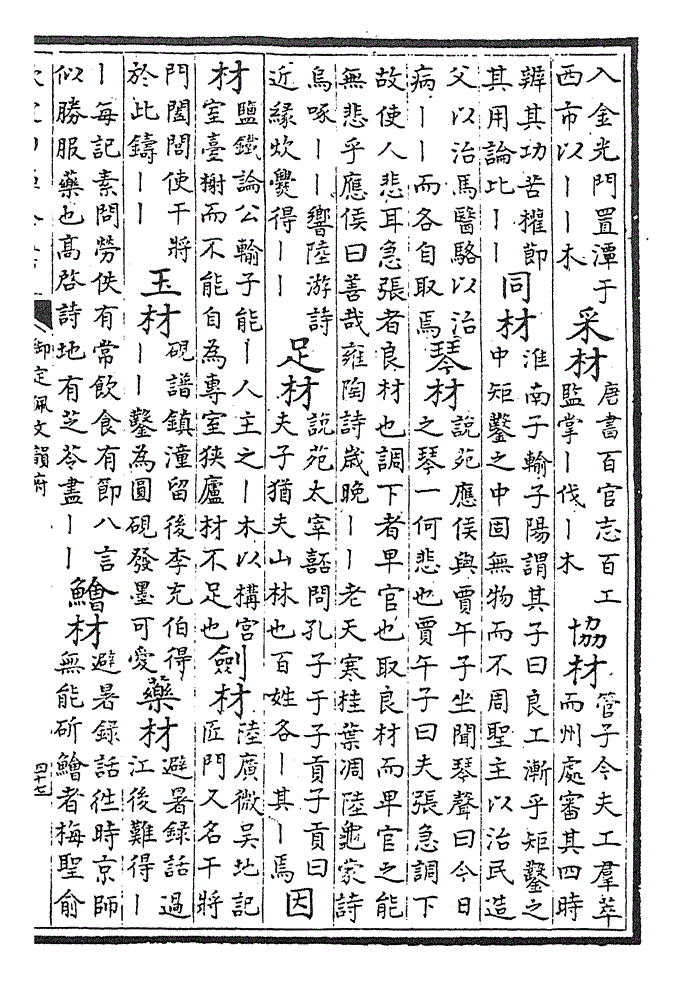 入金光門置潭于
西市以｜｜木
采材
唐書百官志百工
監掌｜伐｜木
協材
管子令夫工羣萃
而州處審其四時
辨其功苦權節
其用論比｜｜
同材
淮南子輸子陽謂其子曰良工漸乎矩鑿之
中矩鑿之中固無物而不周聖主以治民造
父以治馬醫駱以治
病｜｜而各自取焉
琴材
說苑應侯與賈午子坐聞琴聲曰今日
之琴一何悲也賈午子曰夫張急調下
故使人悲耳急張者良材也調下者卑官也取良材而卑官之能
無悲乎應侯曰善哉雍陶詩歲晚｜｜老天寒桂葉凋陸龜蒙詩
烏啄｜｜響陸游詩
近緣炊爨得｜｜
足材
說苑太宰嚭問孔子于子貢子貢曰
夫子猶夫山林也百姓各｜其｜焉
因
材
鹽鐵論公輸子能｜人主之｜木以構宮
室臺榭而不能自為專室狹廬材不足也
劍材
陸廣微吳地記
匠門又名干將
門闔閭使干將
於此鑄｜｜
玉材
硯譜鎮潼留後李充伯得
｜｜鑿為圓硯發墨可愛
藥材
避暑錄話過
江後難得｜
｜每記素問勞佚有常飲食有節八言
似勝服藥也高啓詩地有芝苓盡｜｜
鱠材
避暑錄話徃時京師
無能斫鱠者梅聖俞
御定佩文韻府
四十七